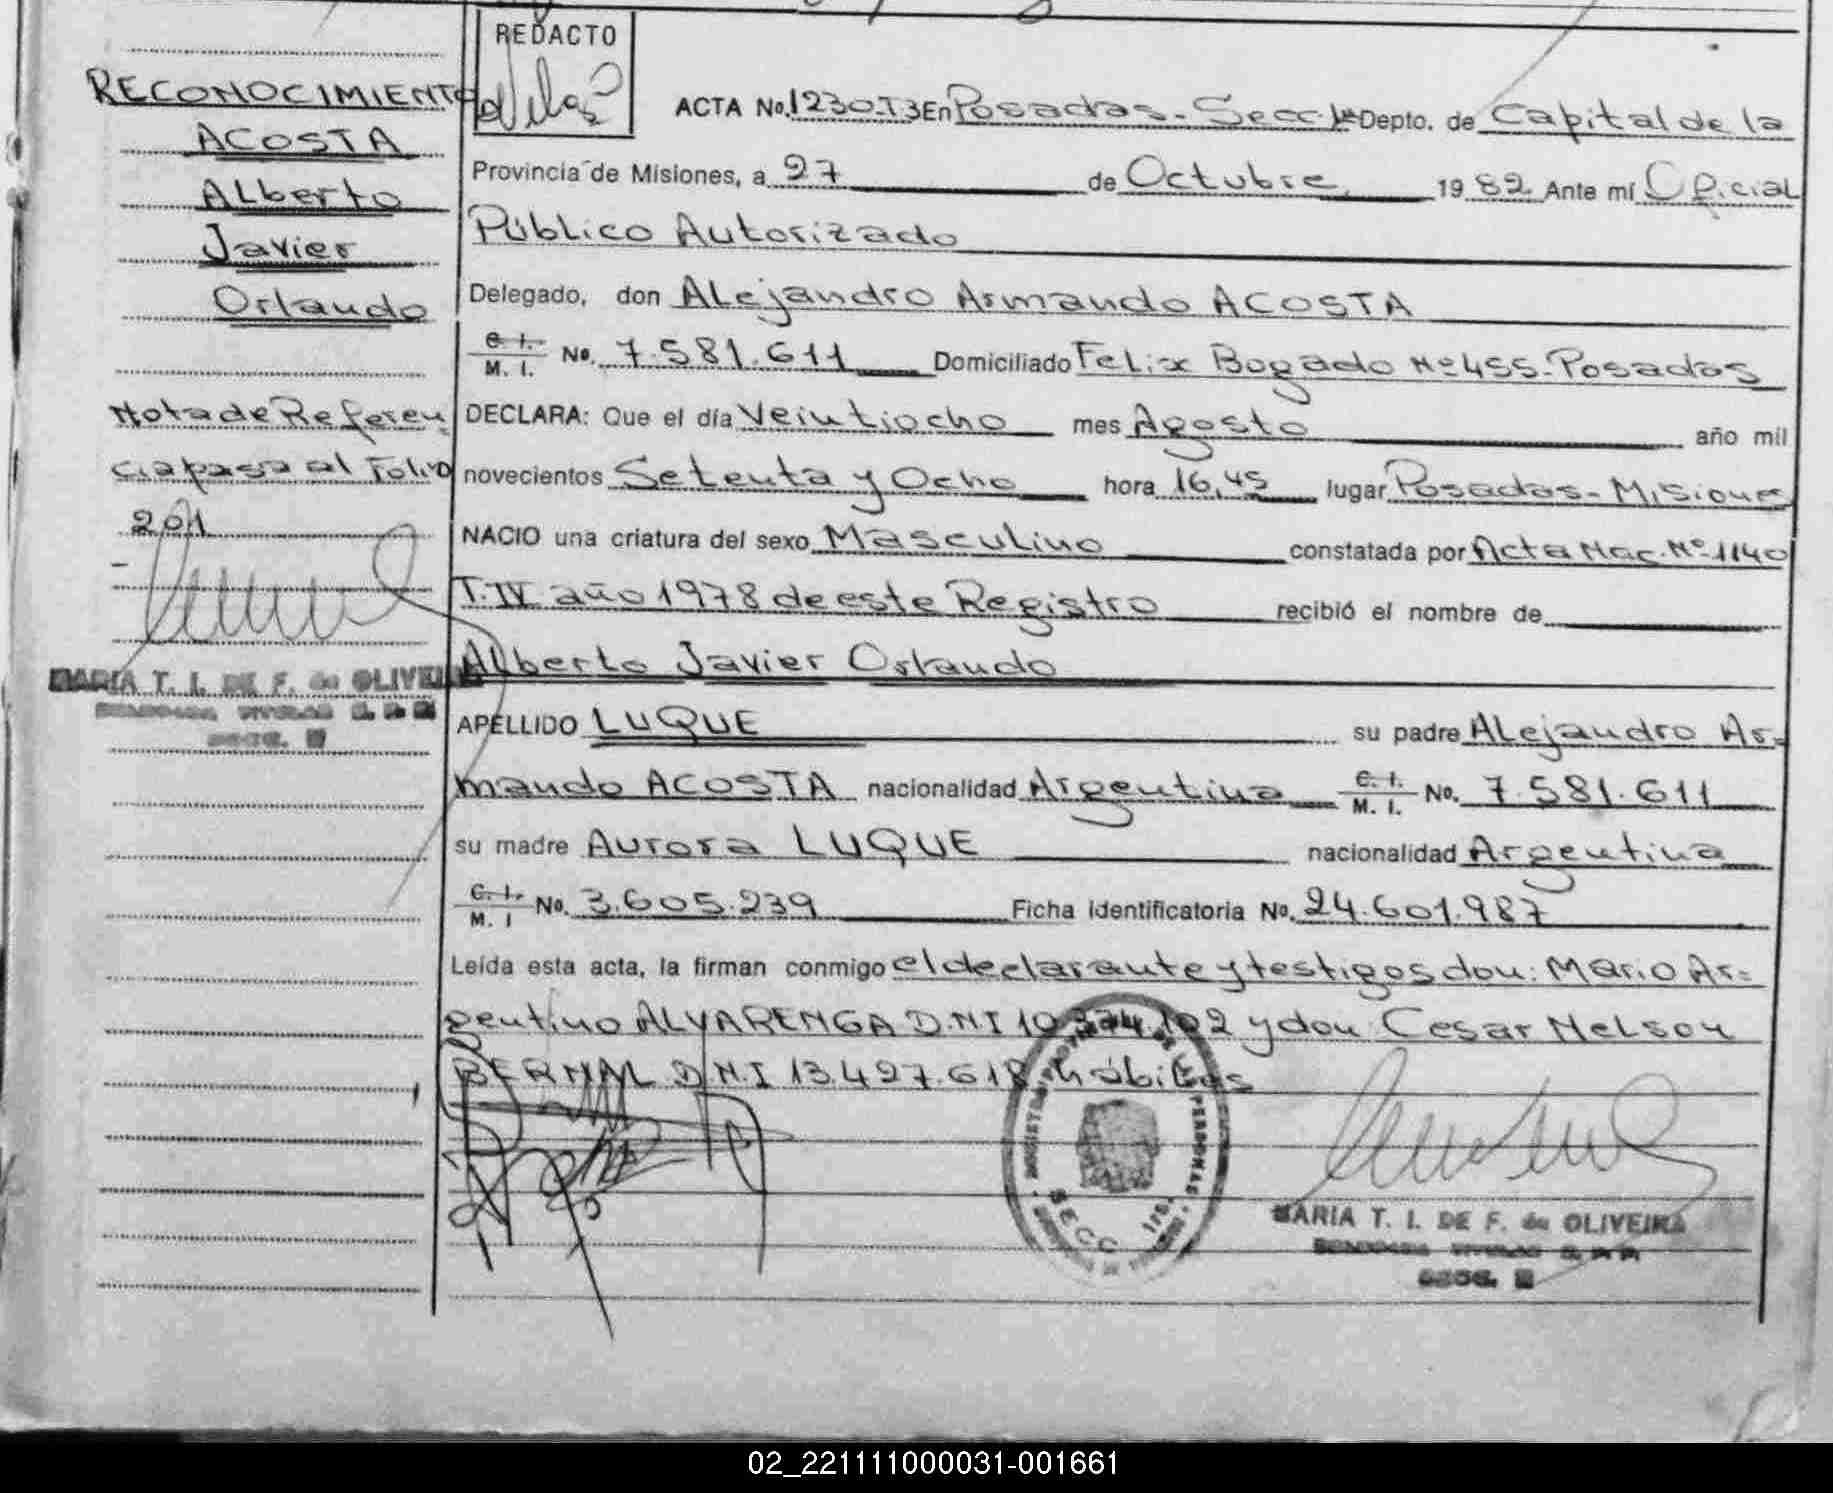 REDACTO
RECONOCIMIENTO
ACOSTA
Alberto
Javier
Orlando
Nota de Referen
cia pasa al Folio
201
MARIA T. I. DE F. de OLIVEIRA
SECC.
ACTA No. 1230-T3 En Posadas - Secc 1ª Depto. de Capital de la
Provincia de Misiones, a 27 de Octubre 1982 Ante mí Oficial
Público Autorizado
Delegado, don Alejandro Armando ACOSTA
C. I. M. I. No. 7.581.611 Domiciliado Felix Bogado Nº 455-Posadas
DECLARA: Que el día Veintiocho mes Agosto año mil
novecientos Setenta y Ocho hora 16,45 lugar Posadas-Misiones
NACIO una criatura del sexo Masculino constatada por Acta Nac. Nº 1140
T. IV año 1978 de este Registro recibió el nombre de
Alberto Javier Orlando
APELLIDO LUQUE su padre Alejandro Ar-
mando ACOSTA nacionalidad Argentina C. I. M. I. No. 7.581.611
su madre Aurora LUQUE nacionalidad Argentina
C. I. M. I No. 3.605.239 Ficha identificatoria No. 24.601.987
Leída esta acta, la firman conmigo el declarante y testigos don: Mario Ar=
gentino ALVARENGA D.N.I 10.374.102 y don Cesar Nelson
BERNAL D.N.I 13.427.618 hábiles
PERSONAS
SECC 1ra.
MARIA T. I. DE F. de OLIVEIRA
SECC.
02_221111000031-001661